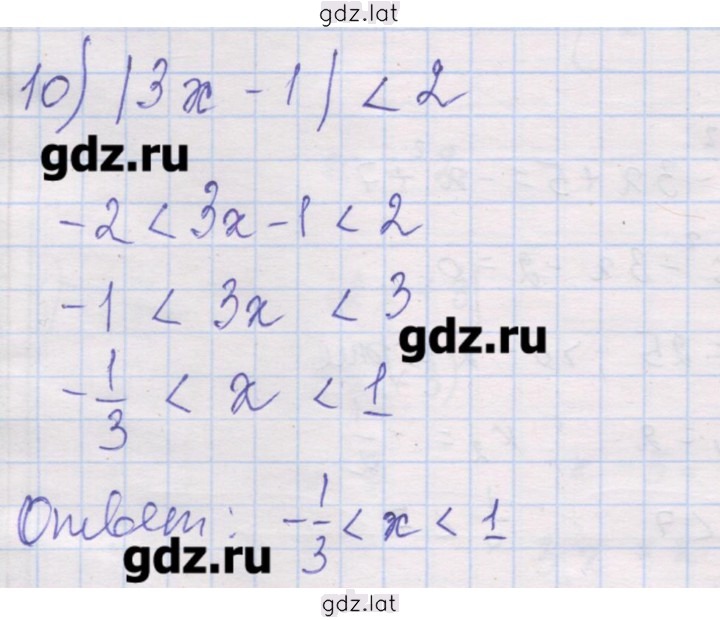 gdz.lat
10) |3x - 1| < 2
gdz.ru
-2 < 3x - 1 < 2
-1 < 3x < 3
gdz.ru
-1/3 < x < 1
Ответ: -1/3 < x < 1
gdz.ru
gdz.lat